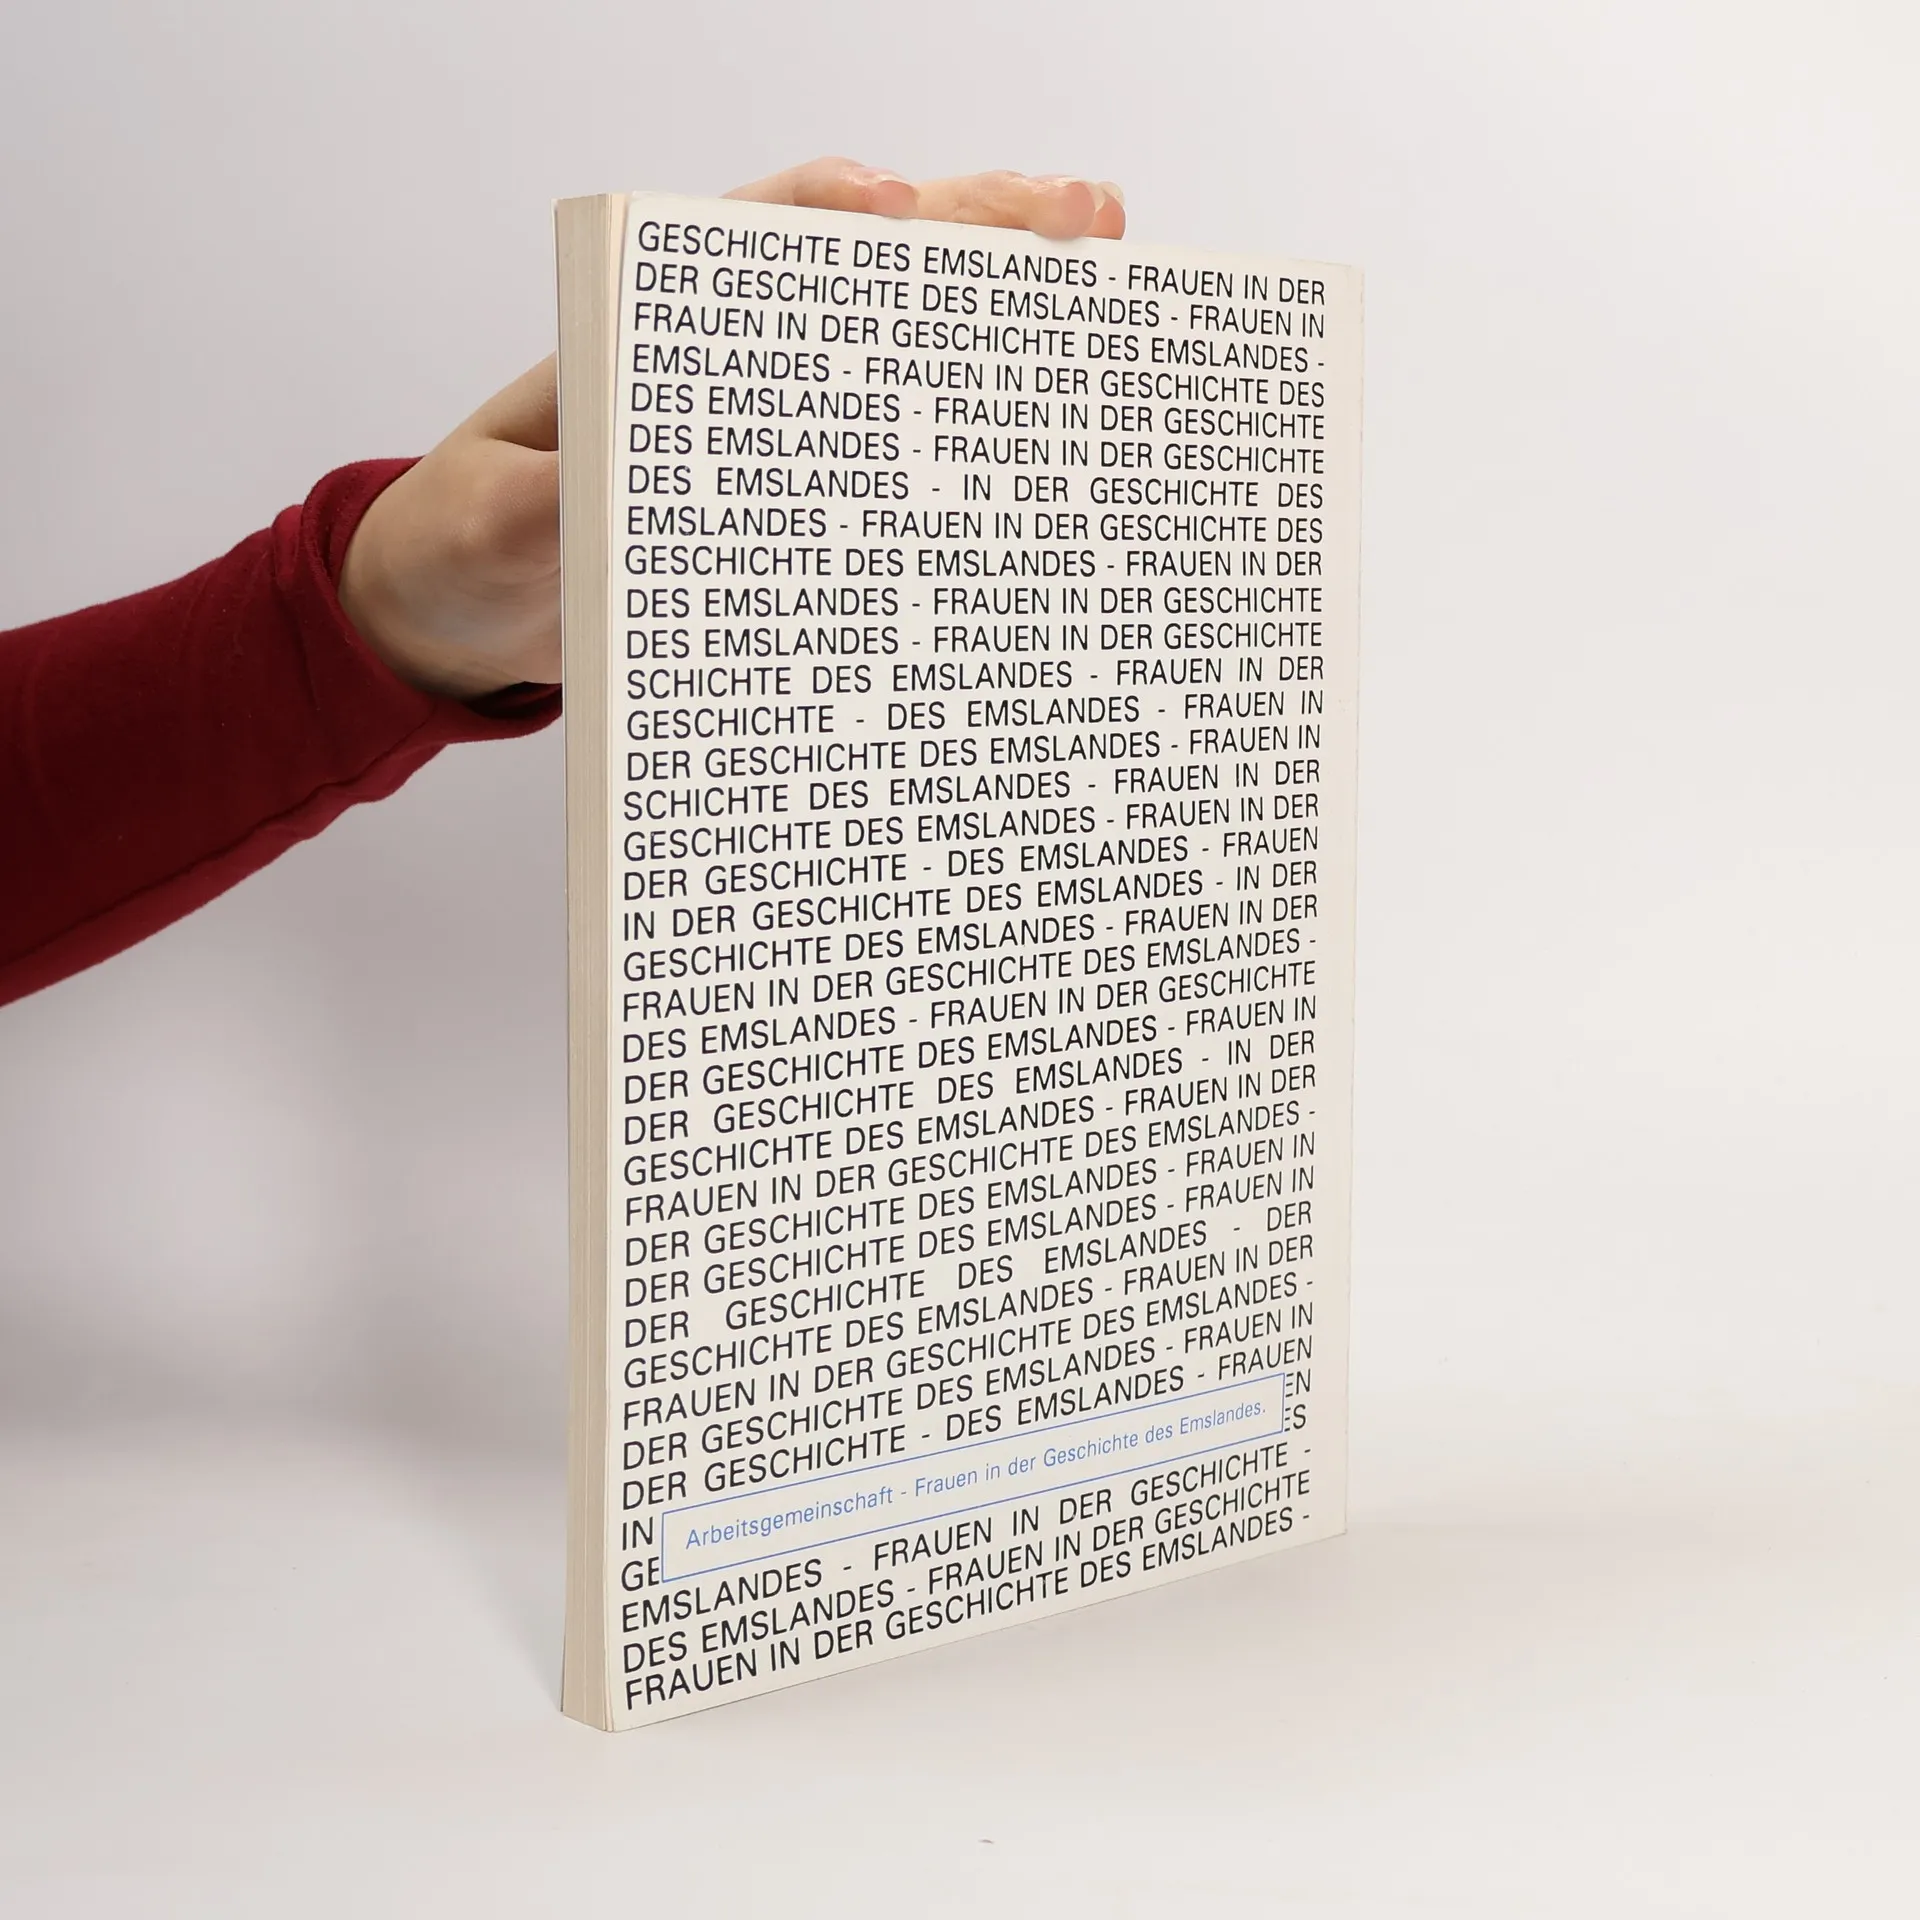 GESCHICHTE DES EMSLANDES - FRAUEN IN DER
DER GESCHICHTE DES EMSLANDES - FRAUEN IN
FRAUEN IN DER GESCHICHTE DES EMSLANDES -
EMSLANDES - FRAUEN IN DER GESCHICHTE DES
DES EMSLANDES - FRAUEN IN DER GESCHICHTE
DES EMSLANDES - FRAUEN IN DER GESCHICHTE
DES EMSLANDES - IN DER GESCHICHTE DES
EMSLANDES - FRAUEN IN DER GESCHICHTE DES
GESCHICHTE DES EMSLANDES - FRAUEN IN DER
DES EMSLANDES - FRAUEN IN DER GESCHICHTE
DES EMSLANDES - FRAUEN IN DER GESCHICHTE
SCHICHTE DES EMSLANDES - FRAUEN IN DER
GESCHICHTE - DES EMSLANDES - FRAUEN IN
DER GESCHICHTE DES EMSLANDES - FRAUEN IN
SCHICHTE DES EMSLANDES - FRAUEN IN DER
GESCHICHTE DES EMSLANDES - FRAUEN IN DER
DER GESCHICHTE - DES EMSLANDES - FRAUEN
IN DER GESCHICHTE DES EMSLANDES - IN DER
GESCHICHTE DES EMSLANDES - FRAUEN IN DER
FRAUEN IN DER GESCHICHTE DES EMSLANDES -
DES EMSLANDES - FRAUEN IN DER GESCHICHTE
DER GESCHICHTE DES EMSLANDES - FRAUEN IN
DER GESCHICHTE DES EMSLANDES - IN DER
GESCHICHTE DES EMSLANDES - FRAUEN IN DER
FRAUEN IN DER GESCHICHTE DES EMSLANDES -
DER GESCHICHTE DES EMSLANDES - FRAUEN IN
DER GESCHICHTE DES EMSLANDES - FRAUEN IN
DER GESCHICHTE DES EMSLANDES - DER
GESCHICHTE DES EMSLANDES - FRAUEN IN DER
FRAUEN IN DER GESCHICHTE DES EMSLANDES -
DER GESCHICHTE DES EMSLANDES - FRAUEN IN
DER GESCHICHTE - DES EMSLANDES - FRAUEN
IN EN
Arbeitsgemeinschaft - Frauen in der Geschichte des Emslandes.
GE ES
EMSLANDES - FRAUEN IN DER GESCHICHTE -
DES EMSLANDES - FRAUEN IN DER GESCHICHTE
FRAUEN IN DER GESCHICHTE DES EMSLANDES -